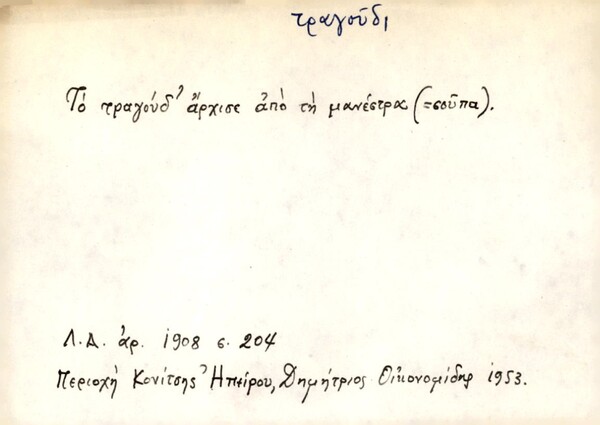 τραγούδι
Τὸ τραγούδ' ἄρχισε ἀπὸ τὴ μανέστρα (=σοῦπα).
Λ.Α. ἀρ. 1908 σ. 204
Περιοχὴ Κονίτσης Ἠπείρου, Δημήτριος Οἰκονομίδης 1953.